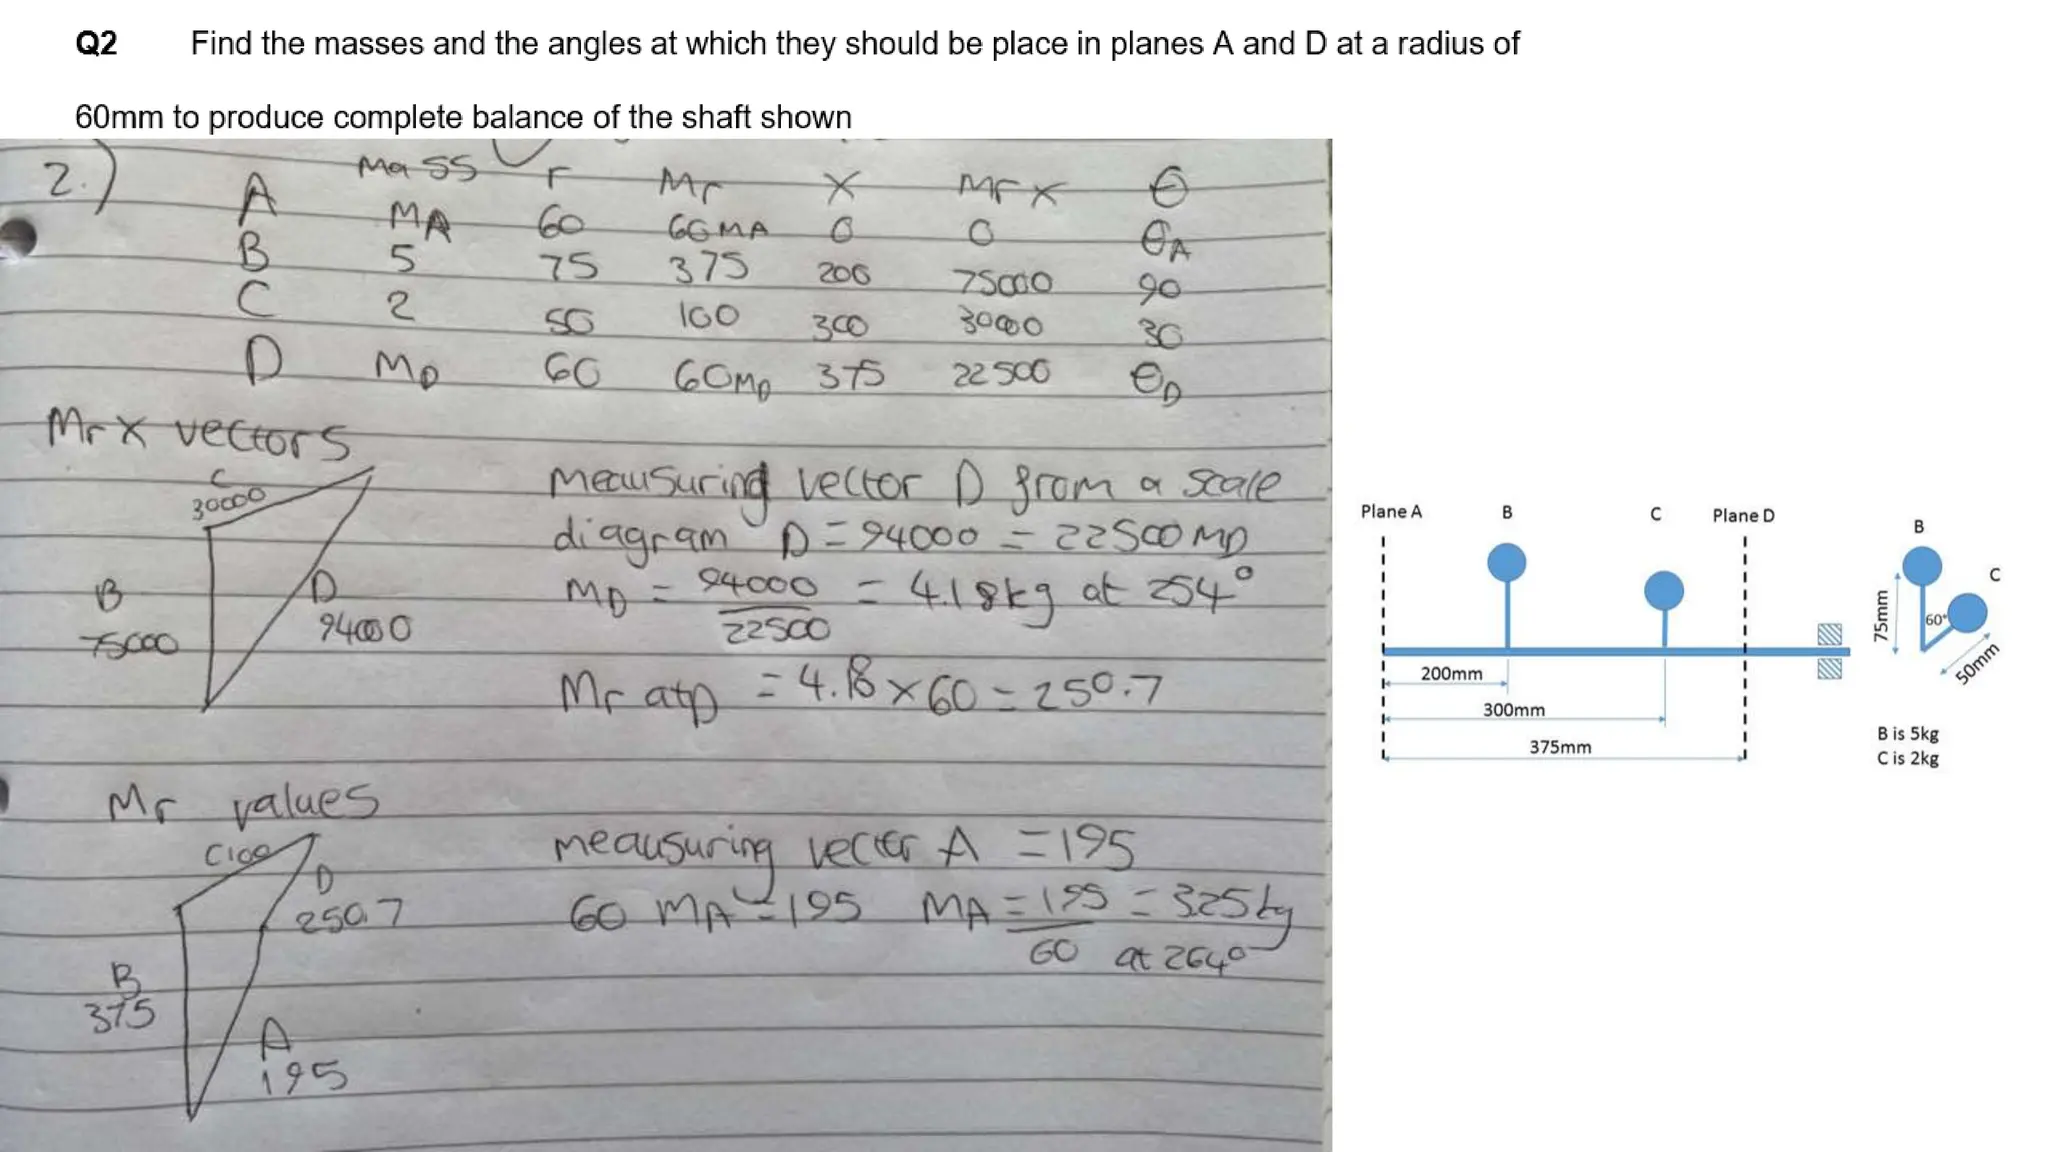 Q2 Find the masses and the angles at which they should be place in planes A and D at a radius of
60mm to produce complete balance of the shaft shown
2.)
Mass r Mr X Mrx θ
A MA 60 60MA 0 0 θA
B 5 75 375 200 75000 90
C 2 50 100 300 30000 30
D MD 60 60MD 375 22500 θD
Mrx vectors
C
30000
B
75000
D
94000
Meausuring vector D from a scale
diagram D = 94000 = 22500 MD
MD = 94000 = 4.18kg at 254°
22500
Mr at D = 4.18 x 60 = 250.7
Mr values
C100
D
250.7
B
375
A
195
meausuring vector A = 195
60 MA = 195 MA = 195 = 3.25kg
60 at 264°
Plane A B C Plane D
200mm
300mm
375mm
B
C
75mm
60°
50mm
B is 5kg
C is 2kg